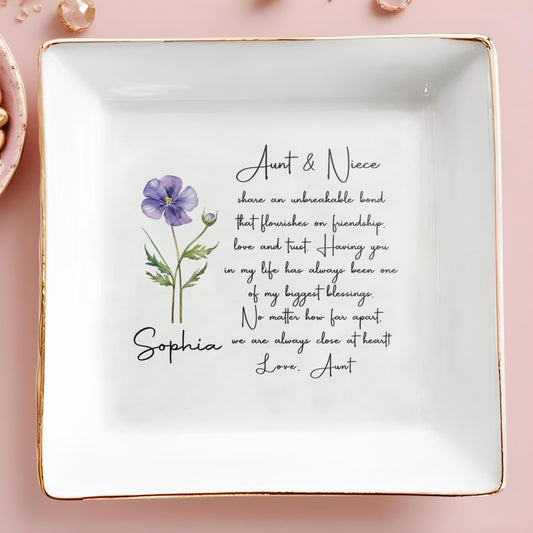 Aunt & Niece
share an unbreakable bond
that flourishes on friendship,
love and trust. Having you
in my life has always been one
of my biggest blessings.
No matter how far apart,
we are always close at heart!
Love, Aunt
Sophia